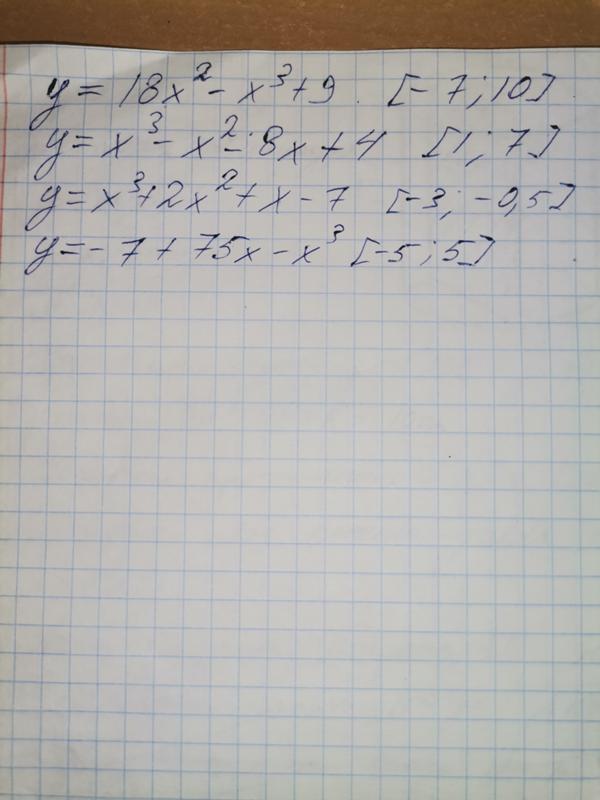 y = 18x² - x³ + 9 [-7; 10]
y = x³ - x² - 8x + 4 [1; 7]
y = x³ + 2x² + x - 7 [-3; -0,5]
y = -7 + 75x - x³ [-5; 5]